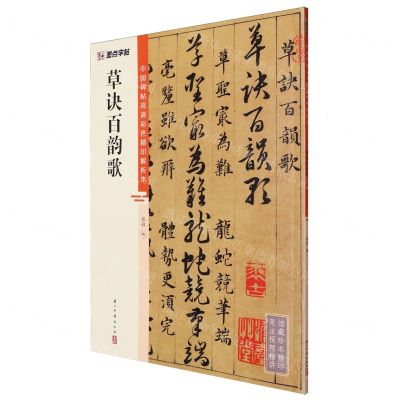 墨点字帖
草诀百韵歌
中国碑帖高清彩色精印解析本
草訣百韻歌
草訣百韻歌
草聖㝡為難 龍蛇競筆端
草聖㝡為難龍蛇競筆端
毫釐雖欲辨 體勢更須完
馆藏珍本精印
笔法视频精讲